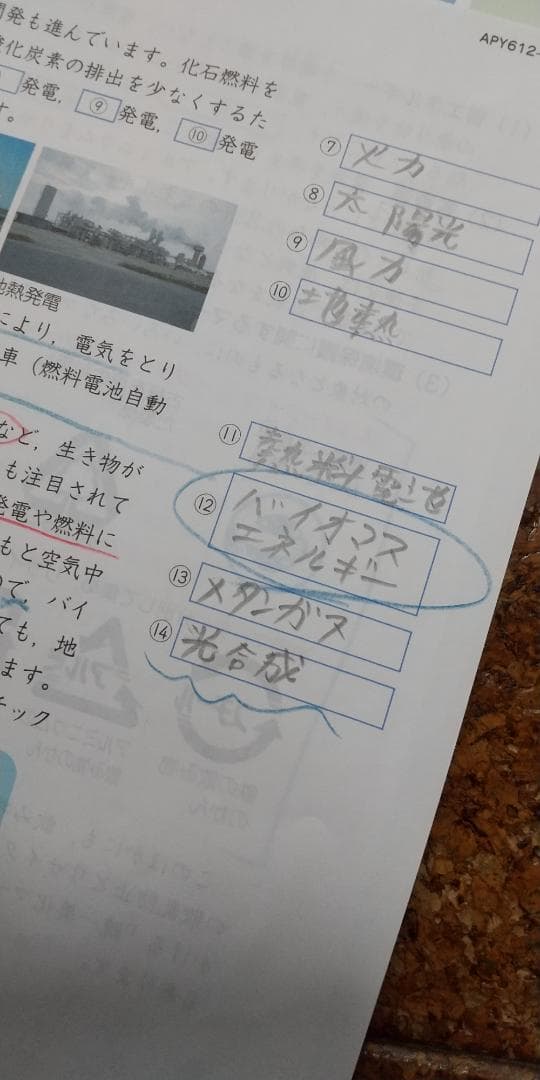 APY612-
開発も進んでいます。化石燃料を
酸化炭素の排出を少なくするた
発電, ⑨発電, ⑩発電
す。
地熱発電
により, 電気をとり
車 (燃料電池自動
など, 生き物が
も注目されて
発電や燃料に
もと空気中
ので, バイ
ても, 地
ます。
チック
⑦ 火力
⑧ 太陽光
⑨ 風力
⑩ 地熱
⑪ 熱料電池
⑫ バイオマス
エネルギー
⑬ メタンガス
⑭ 光合成